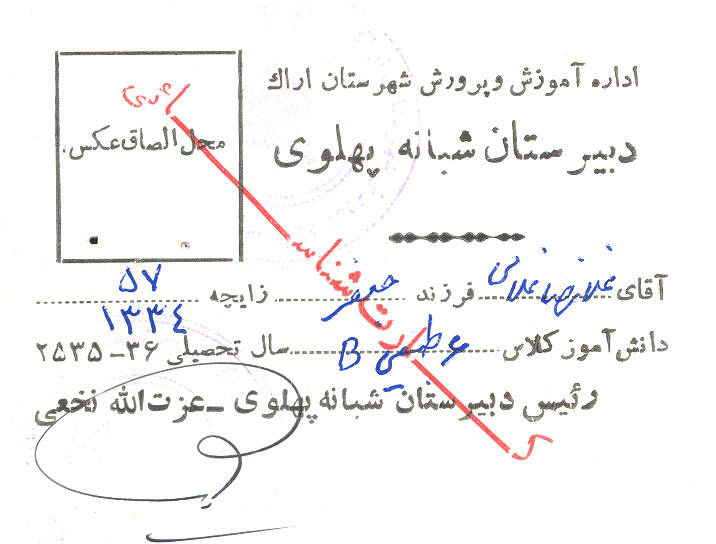 اداره آموزش و پرورش شهرستان اراک
دبیرستان شبانه پهلوی
محل الصاق عکس.
کارت شناسائی
آقای غلامرضا غلامی فرزند جعفر زایچه ۵۷
۱۳۳۴
دانش آموز کلاس B سال تحصیلی ۳۶-۲۵۳۵
رئیس دبیرستان شبانه پهلوی - عزت الله نخعی